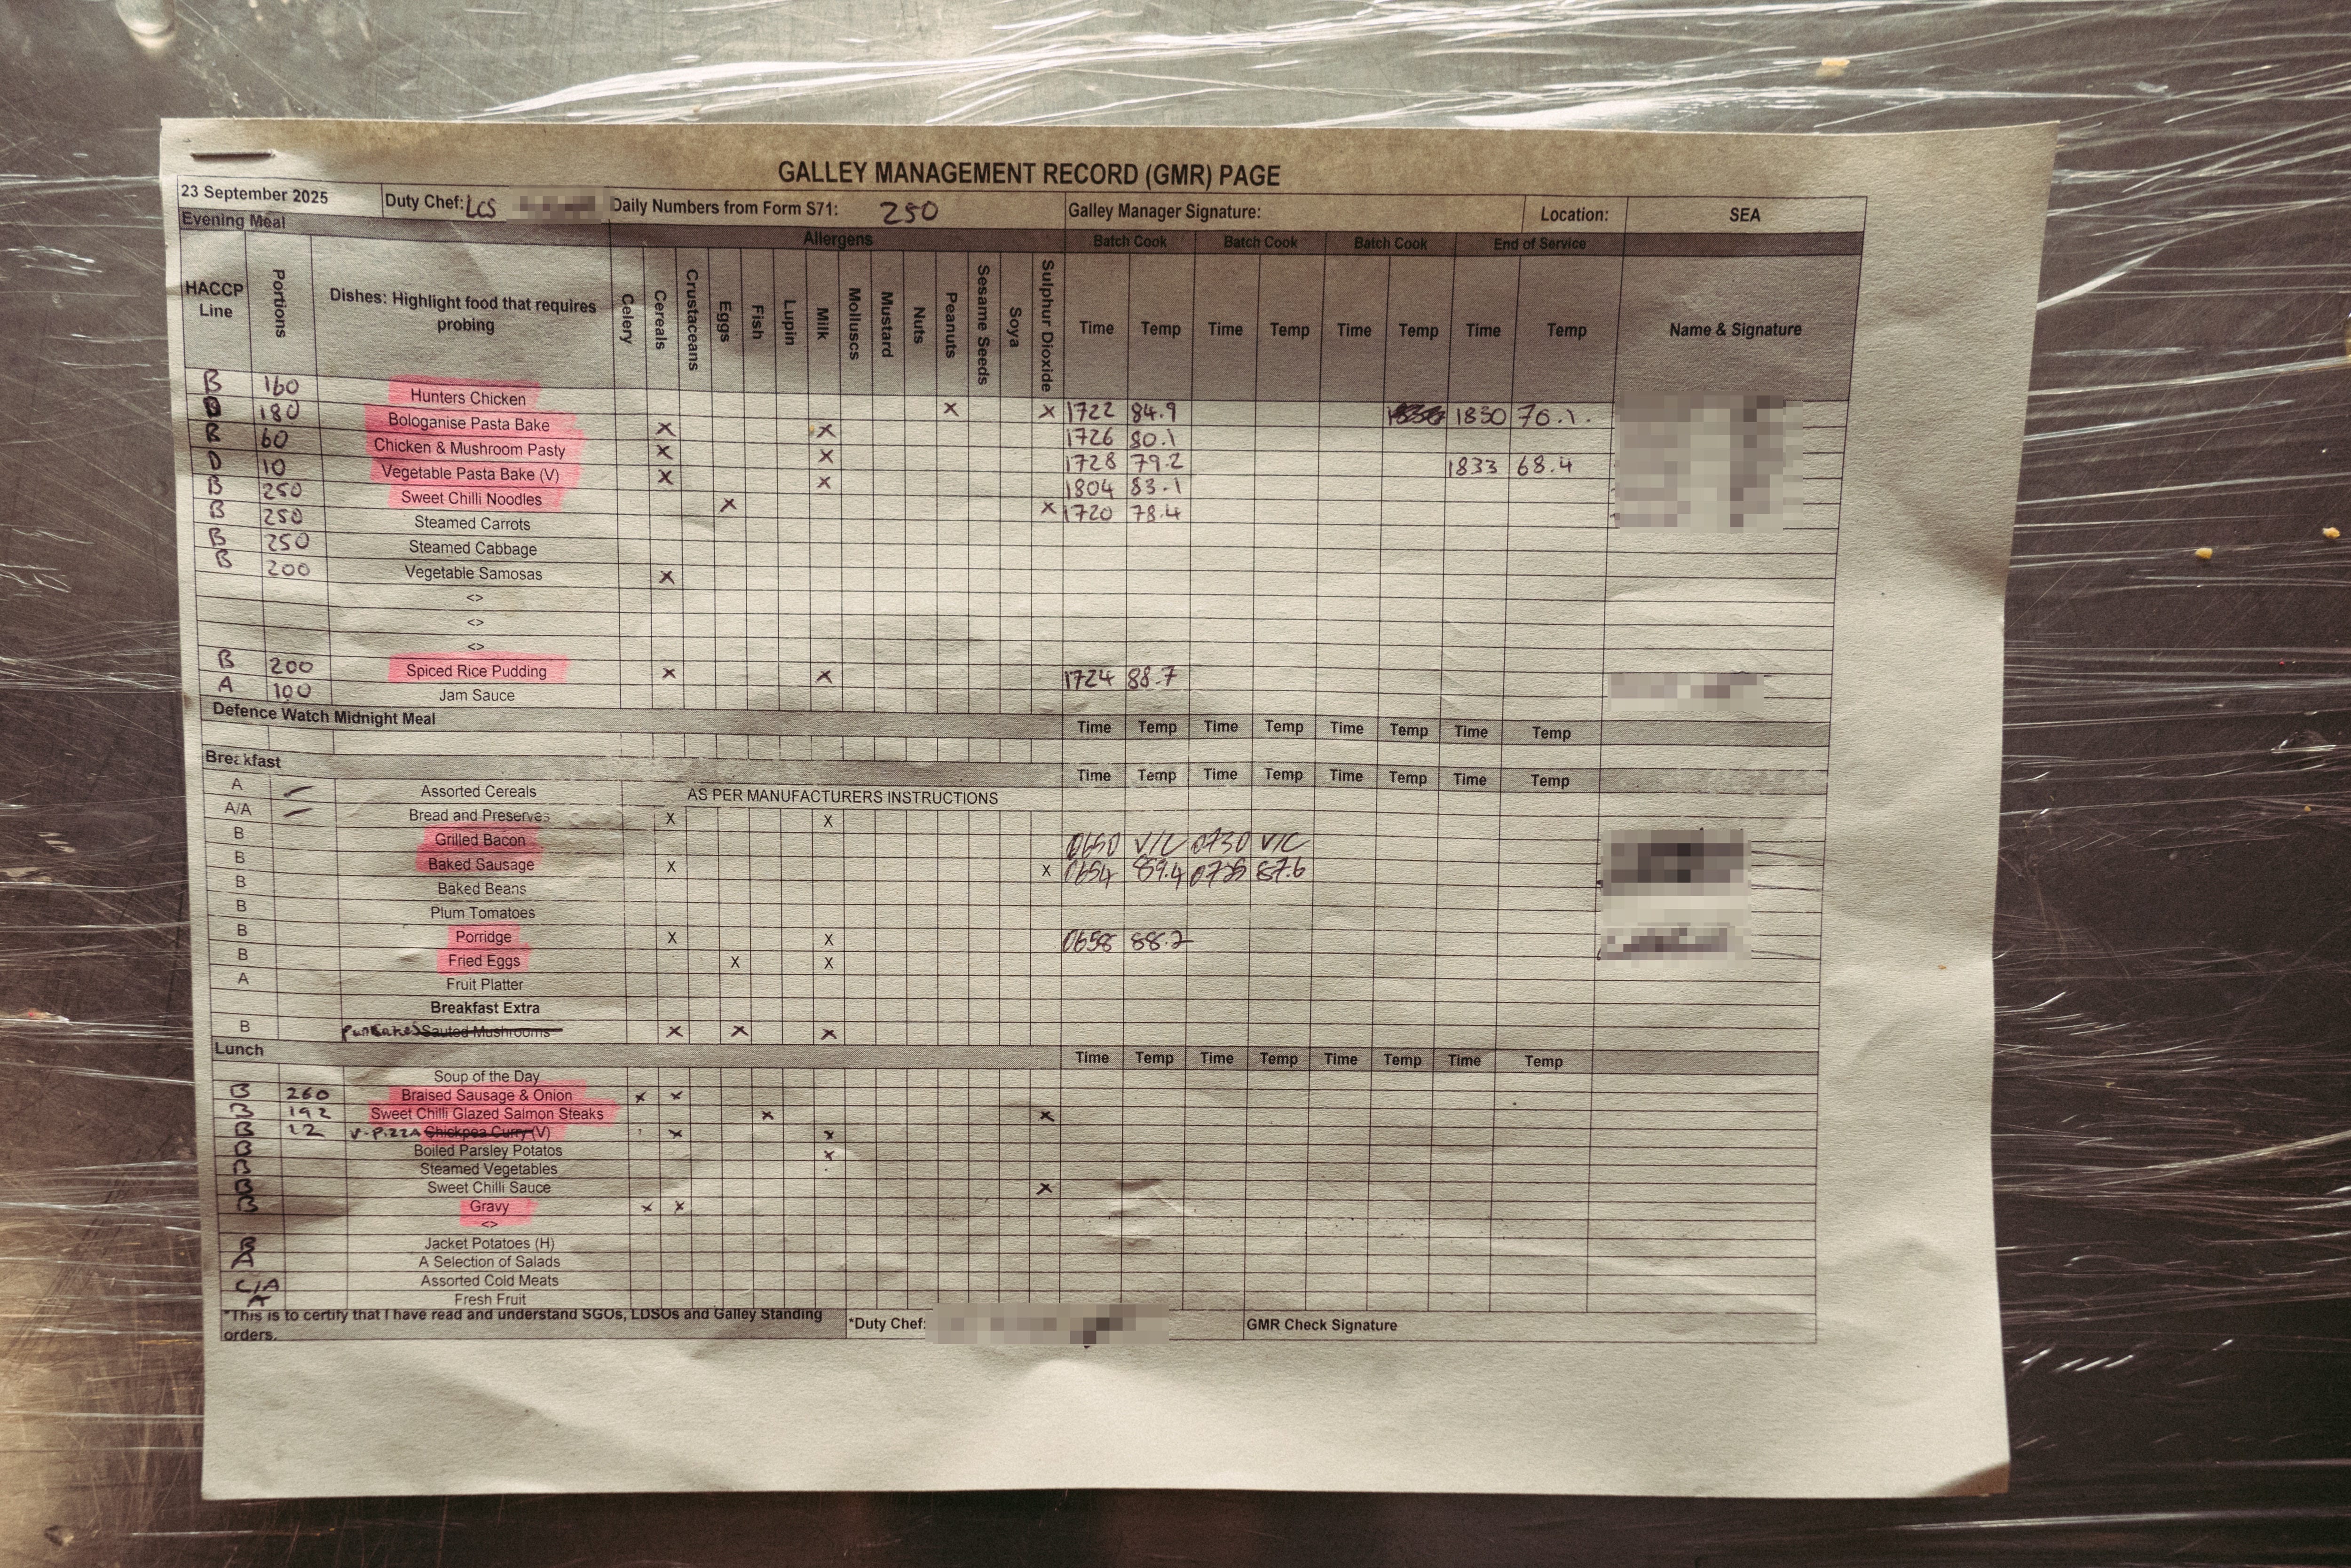 GALLEY MANAGEMENT RECORD (GMR) PAGE
23 September 2025 Duty Chef: LCS Daily Numbers from Form S71: 250 Galley Manager Signature: Location: SEA
Evening Meal Allergens Batch Cook Batch Cook Batch Cook End of Service
HACCP Line Portions Dishes: Highlight food that requires probing Celery Cereals Crustaceans Eggs Fish Lupin Milk Molluscs Mustard Nuts Peanuts Sesame Seeds Soya Sulphur Dioxide Time Temp Time Temp Time Temp Time Temp Name & Signature
B 160 Hunters Chicken X X 1722 84.9 1830 76.1.
180 Bologanise Pasta Bake X X 1726 80.1
B 60 Chicken & Mushroom Pasty X X 1728 79.2 1833 68.4
D 10 Vegetable Pasta Bake (V) X X 1804 83.1
B 250 Sweet Chilli Noodles X X 1720 78.4
B 250 Steamed Carrots
B 250 Steamed Cabbage
B 200 Vegetable Samosas X
<>
<>
<>
B 200 Spiced Rice Pudding X X 1724 88.7
A 100 Jam Sauce
Defence Watch Midnight Meal Time Temp Time Temp Time Temp Time Temp
Breakfast Time Temp Time Temp Time Temp Time Temp
A Assorted Cereals AS PER MANUFACTURERS INSTRUCTIONS
A/A Bread and Preserves X X
B Grilled Bacon 0650 V/C 0730 V/C
B Baked Sausage X X 0654 89.4 87.6
B Baked Beans
B Plum Tomatoes
B Porridge X X 0658 88.2
B Fried Eggs X X
A Fruit Platter
Breakfast Extra
B Pancakes Sauted Mushrooms X X X
Lunch Time Temp Time Temp Time Temp Time Temp
Soup of the Day
B 260 Braised Sausage & Onion X X
B 192 Sweet Chilli Glazed Salmon Steaks X X
B 12 V-PIZZA Chickpea Curry (V) X X
B Boiled Parsley Potatos X
B Steamed Vegetables
B Sweet Chilli Sauce X
B Gravy X X
<>
B Jacket Potatoes (H)
A A Selection of Salads
C/A Assorted Cold Meats
A Fresh Fruit
*This is to certify that I have read and understand SGOs, LDSOs and Galley Standing orders. *Duty Chef: GMR Check Signature